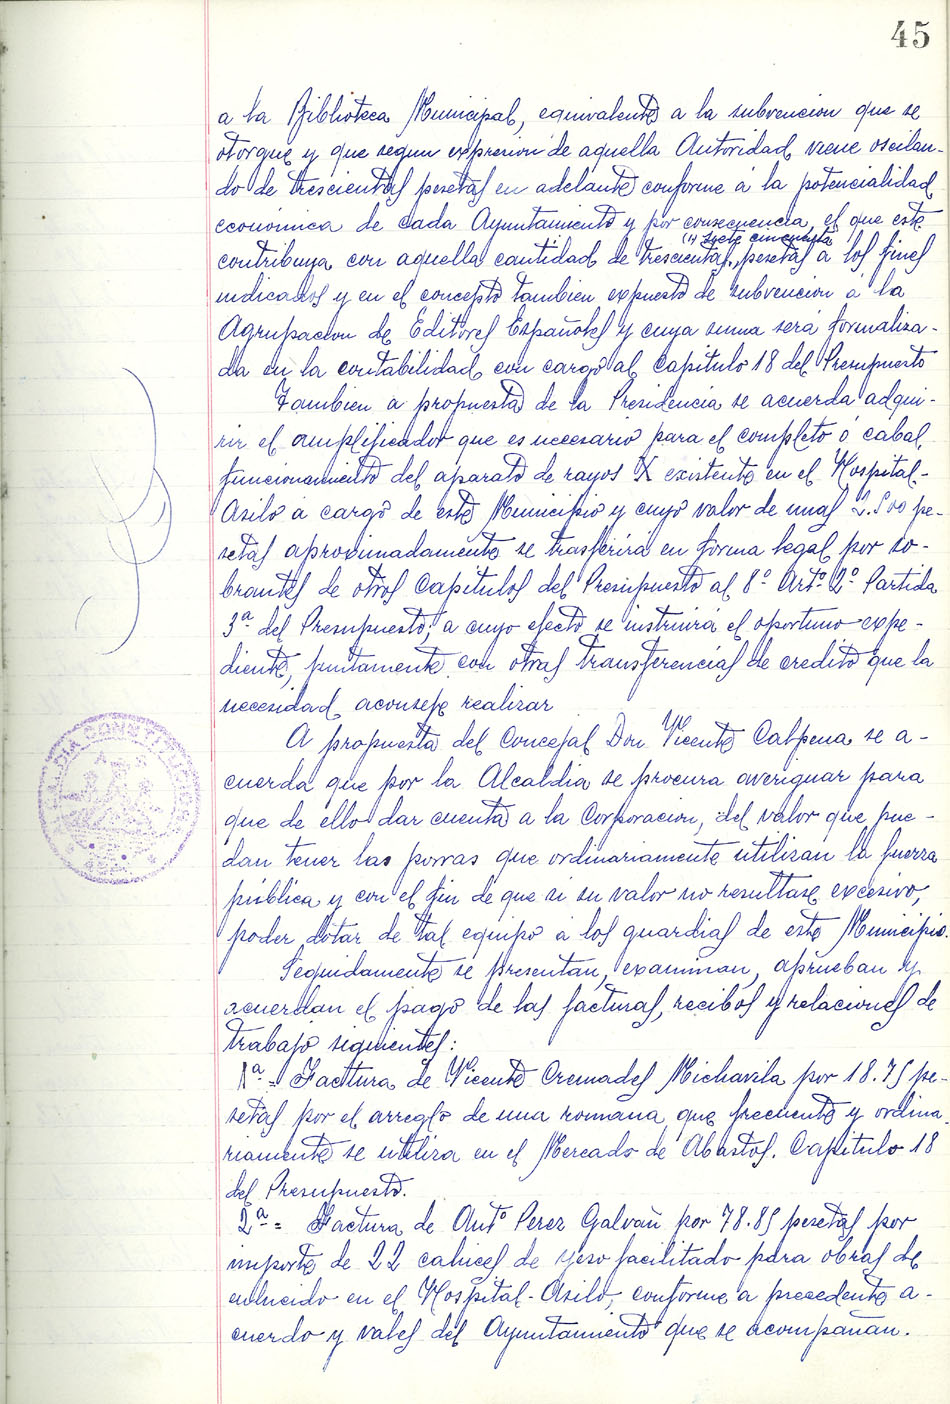 45
a la Biblioteca Municipal, equivalente a la subvencion que se
otorgue y que segun expresion de aquella Autoridad viene oscilan-
do de trescientas pesetas en adelante conforme á la potencialidad
económica de cada Ayuntamiento y por consecuencia, el que este
(1) siete cincuenta
contribuya con aquella cantidad de trescientas, pesetas a los fines
indicados y en el concepto tambien expuesto de subvencion á la
Agrupacion de Editores Españoles y cuya suma será formaliza-
da en la contabilidad con cargo al Capitulo 18 del Presupuesto
Tambien a propuesta de la Presidencia se acuerda adqui-
rir el amplificador que es necesario para el completo ó cabal
funcionamiento del aparato de rayos X existente en el Hospital-
Asilo a cargo de este Municipio y cuyo valor de unas 2.500 pe-
setas aproximadamente se trasferirá en forma legal por so-
brantes de otros Capitulos del Presupuesto al 8º Artº 2º Partida
3ª del Presupuesto, a cuyo efecto se instruirá el oportuno expe-
diente, juntamente con otras transferencias de credito que la
necesidad aconseje realizar
A propuesta del Concejal Don Vicente Calpena se a-
cuerda que por la Alcaldia se procura averiguar para
que de ello dar cuenta a la Corporacion, del valor que pue-
dan tener las porras que ordinariamente utilizan la fuerza
pública y con el fin de que si su valor no resultase excesivo,
poder dotar de tal equipo a los guardias de este Municipio.
Seguidamente se presentan, examinan, aprueban y
acuerdan el pago de las facturas, recibos y relaciones de
trabajo siguientes:
1ª = Factura de Vicente Cremades Michavila por 18.75 pe-
setas por el arreglo de una romana que frecuente y ordina
riamente se utiliza en el Mercado de Abastos. Capitulo 18
del Presupuesto.
2ª = Factura de Antº Perez Galvañ por 78.85 pesetas por
importe de 22 cahices de yeso facilitado para obras de
enlucido en el Hospital-Asilo, conforme a precedente a-
cuerdo y vales del Ayuntamiento que se acompañan.
ALCALDIA CONSTITUCIONAL